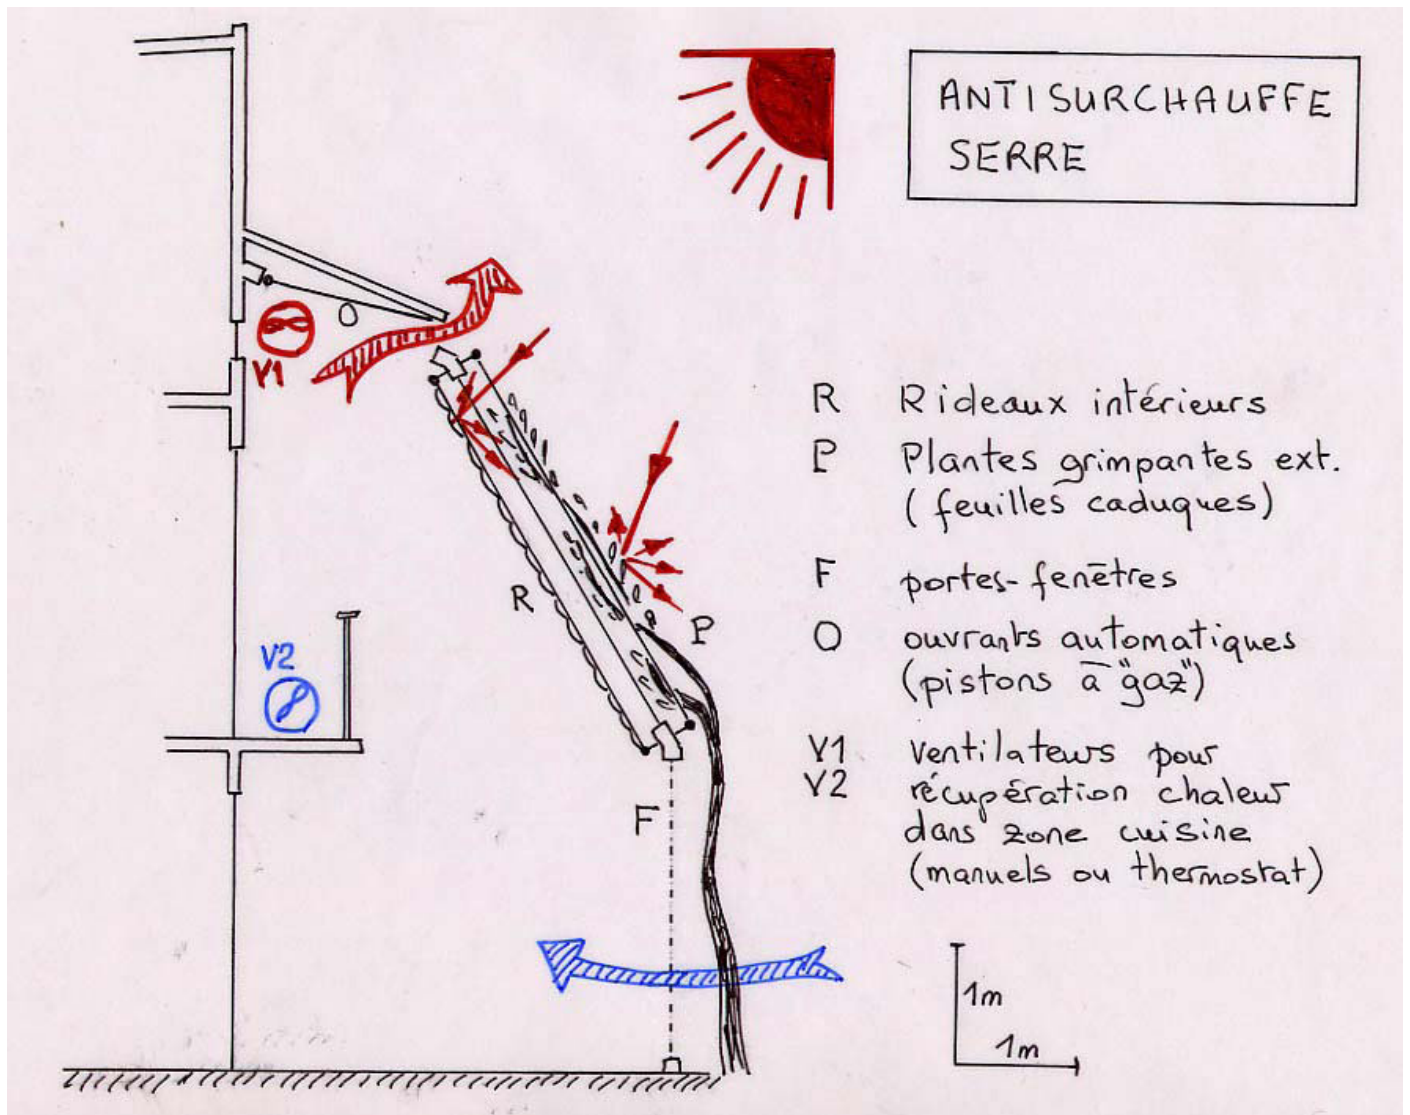 ANTISURCHAUFFE
SERRE
O
V1
R Rideaux intérieurs
P Plantes grimpantes ext.
(feuilles caduques)
R
F portes-fenêtres
P
O ouvrants automatiques
(pistons à "gaz")
V2
V1 ventilateurs pour
V2 récupération chaleur
dans zone cuisine
(manuels ou thermostat)
F
1m
1m